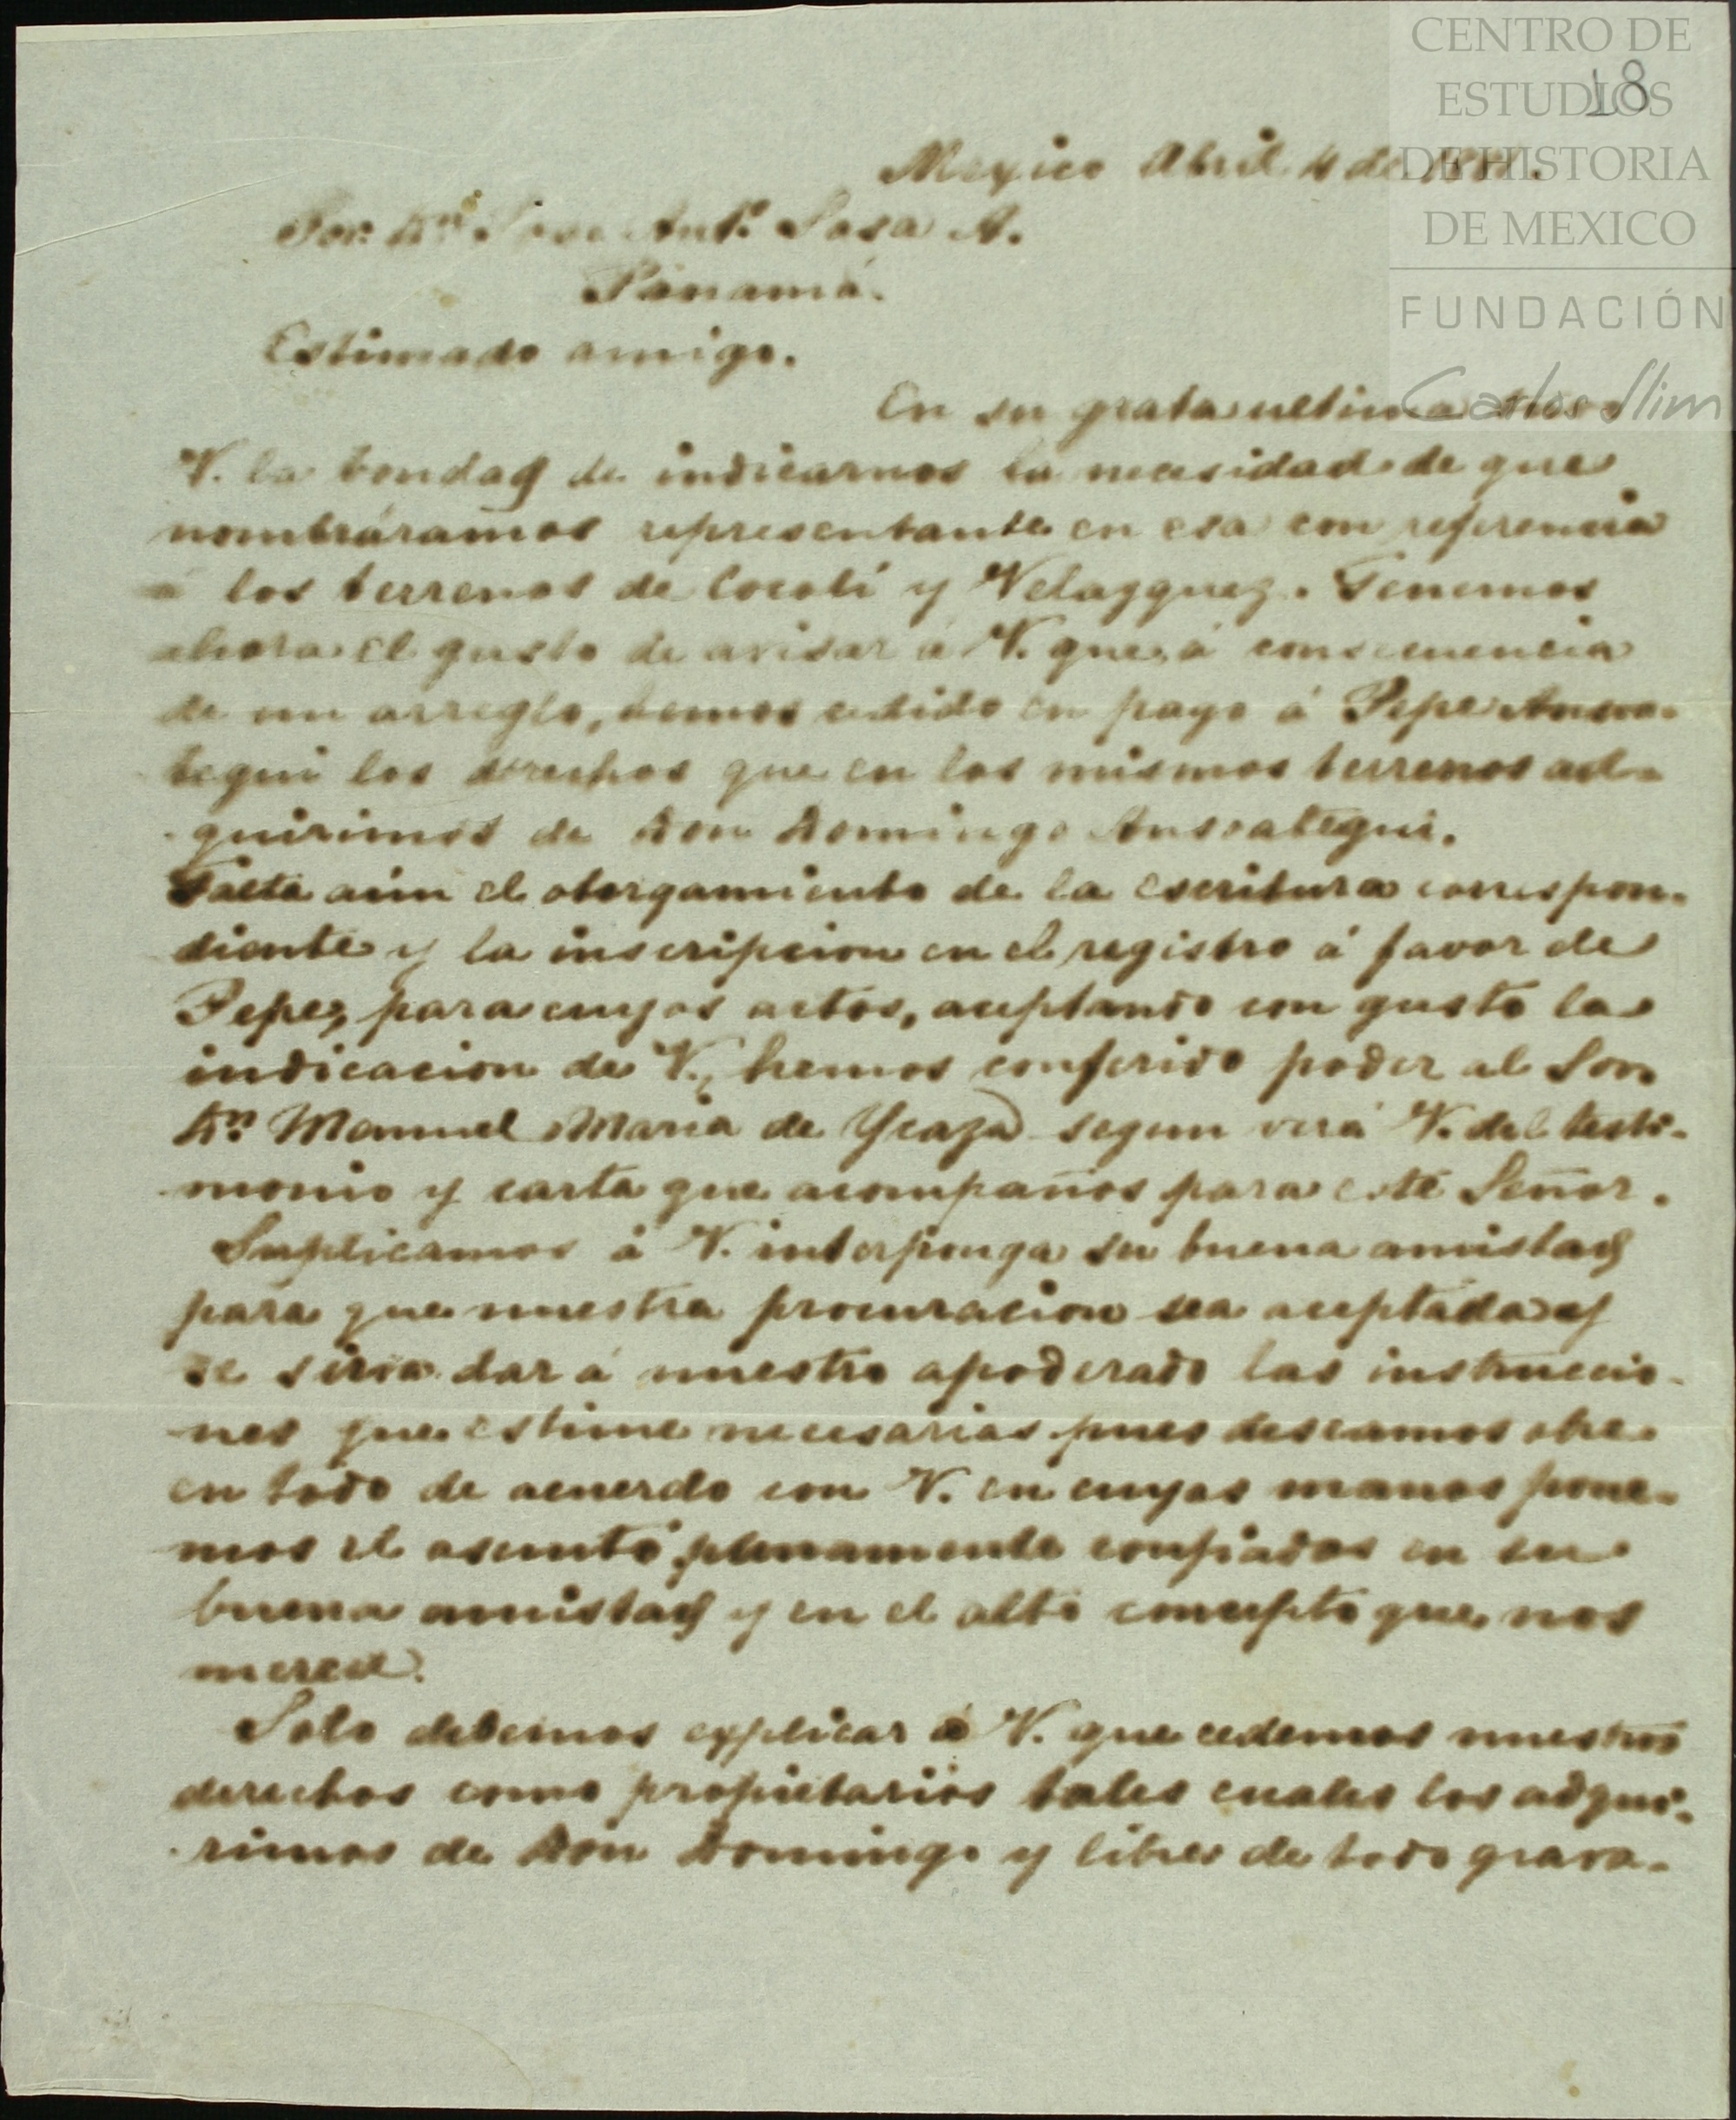 CENTRO DE
ESTUDIOS
DE HISTORIA
DE MEXICO
FUNDACIÓN
Carlos Slim
18
Mexico Abril 4 de
Sor. Dn. Jose Anto. Sosa A.
Panamá.
Estimado amigo.
En su grata ultima
V. la bondad de indicarnos la necesidad de que
nombráramos representante en esa con referencia
á los terrenos de Cocolí y Velazquez. Tenemos
ahora el gusto de avisar á V. que, á consecuencia
de un arreglo, hemos cedido en pago á Pepe Ansoa-
tegui los derechos que en los mismos terrenos ad-
quirimos de Don Domingo Ansoategui.
Falta aún el otorgamiento de la escritura correspon-
diente y la inscripcion en el registro á favor de
Pepe, para cuyos actos, aceptando con gusto la
indicacion de V., hemos conferido poder al Sor.
Dn. Manuel Maria de Ycaza segun verá V. del testi-
monio y carta que acompaños para este Señor.
Suplicamos á V. interponga su buena amistad
para que nuestra procuracion sea aceptada y
se sirva dar á nuestro apoderado las instruccio-
nes que estime necesarias pues deseamos obre
en todo de acuerdo con V. en cuyas manos pone-
mos el asunto plenamente confiados en su
buena amistad y en el alto concepto que nos
merece.
Solo debemos explicar á V. que cedemos nuestros
derechos como propietarios tales cuales los adqui-
rimos de Don Domingo y libres de todo grava-